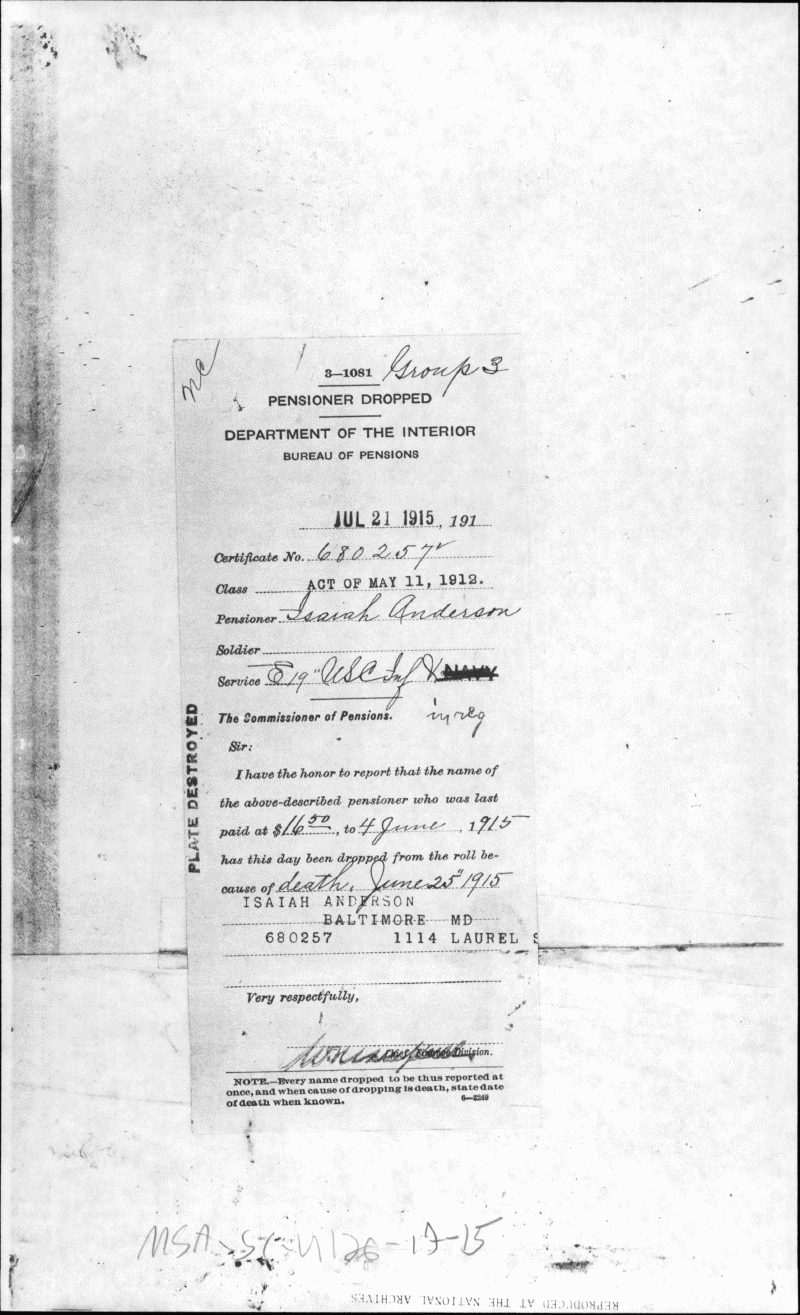 nc
3—1081 Group 3
PENSIONER DROPPED
DEPARTMENT OF THE INTERIOR
BUREAU OF PENSIONS
JUL 21 1915, 191
Certificate No. 680257
Class ACT OF MAY 11, 1912.
Pensioner Isaiah Anderson
Soldier
Service E 19" USC Inf NAVY
The Commissioner of Pensions.
Sir:
I have the honor to report that the name of
the above-described pensioner who was last
paid at $16 50, to 4 June, 1915
has this day been dropped from the roll be-
cause of death, June 25" 1915
ISAIAH ANDERSON
BALTIMORE MD
680257 1114 LAUREL S
Very respectfully,
Division.
NOTE.—Every name dropped to be thus reported at
once, and when cause of dropping is death, state date
of death when known. 6—2249
PLATE DESTROYED
MSA-SC-4126-17-15
REPRODUCED AT THE NATIONAL ARCHIVES